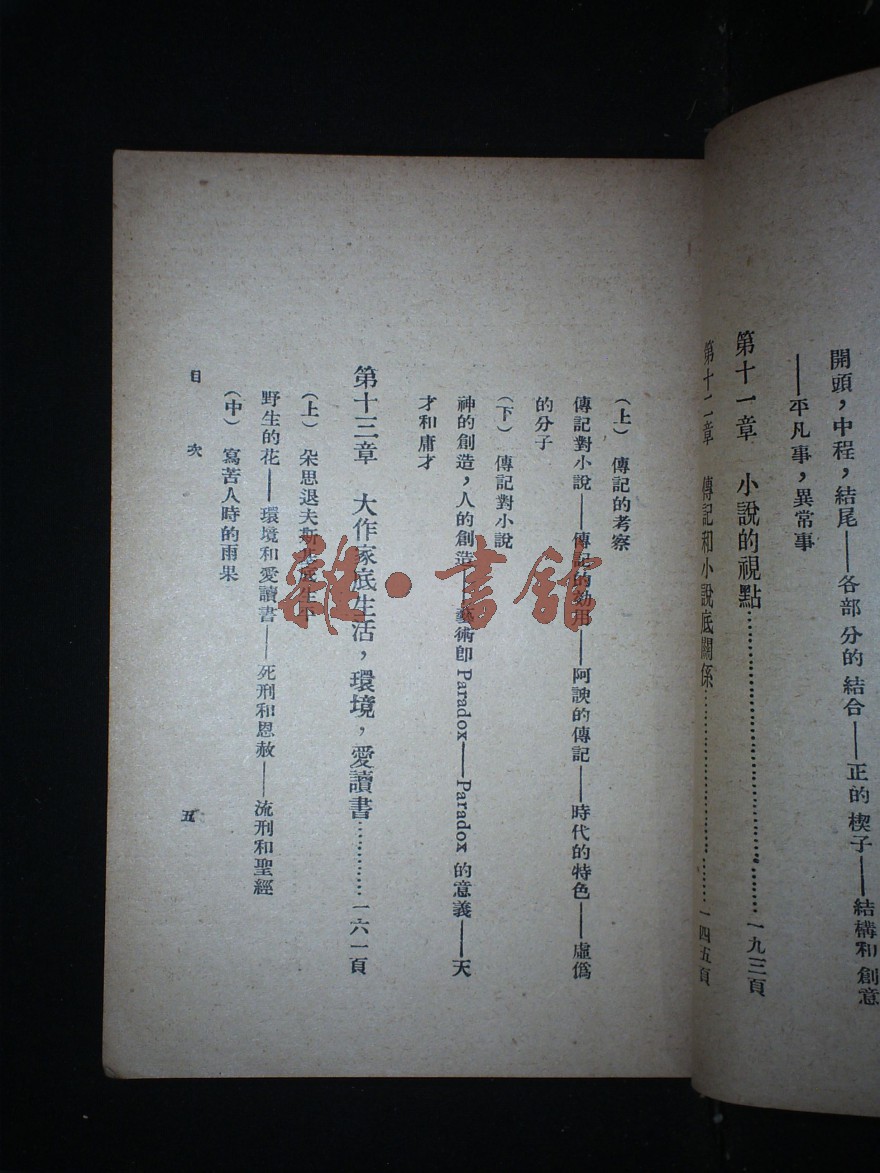 開頭，中程，結尾——各部分的結合——正的楔子——結構和創意
——平凡事，異常事
第十一章　小說的視點…………………一九三頁
第十二章　傳記和小說底關係…………………一四五頁
（上）傳記的考察
傳記對小說——傳記的効用——阿諛的傳記——時代的特色——虛僞
的分子
（下）傳記對小說
神的創造，人的創造——藝術卽Paradox——Paradox的意義——天
才和庸才
第十三章　大作家底生活，環境，愛讀書…………一六一頁
（上）朶思退夫斯基底生平
野生的花——環境和愛讀書——死刑和恩赦——流刑和聖經
（中）寫苦人時的雨果
目次
五
雜·書館